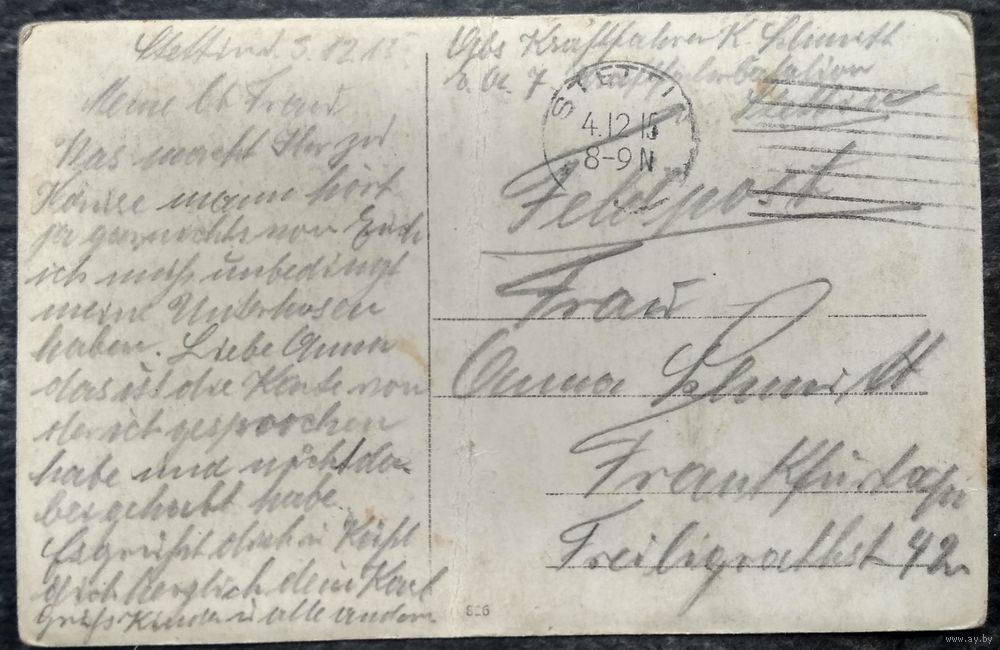 Stettin d. 3.12.15
Meine lb Frau
Was macht Ihr zu
Hause mann hört
ja garnichts von Euch
ich muß unbedingt
meine Unterhosen
haben. Liebe Anna
das ist die Karte von
der ich gesproochen
habe und nicht da
bei gehabt habe.
Es grüßt dich u Küßt
dich herzlich dein Karl
Grüß Kinder u alle andern
Abs Kraftfahrer K. Schmitt
7
Stettin
STETTI
4.12 15
8-9 N
Feldpost
Frau
Anna Schmitt
Frankfurt
Freiligrathst 42
826
www.ay.by